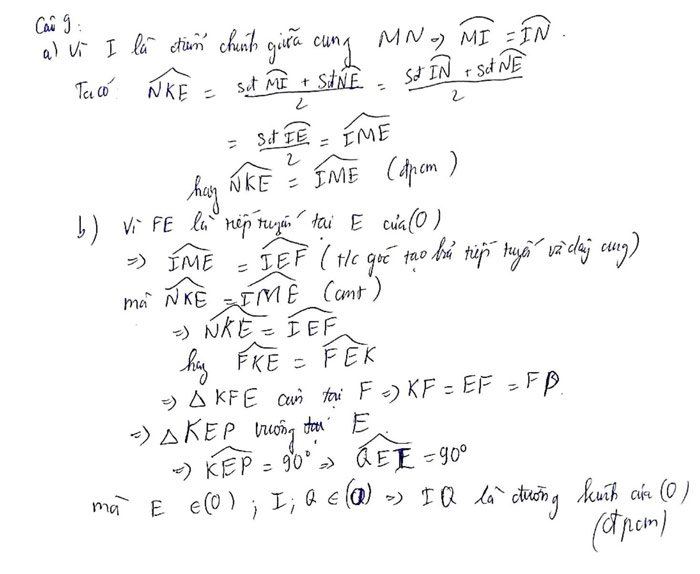 Câu 9:
a) Vì I là điểm chính giữa cung MN => MI = IN.
Ta có: NKE = (sđ MI + sđ NE)/2 = (sđ IN + sđ NE)/2
= sđ IE/2 = IME
hay NKE = IME (đpcm)
b) Vì FE là tiếp tuyến tại E của (O)
=> IME = IEF (t/c góc tạo bởi tiếp tuyến và dây cung)
mà NKE = IME (cmt)
=> NKE = IEF
hay FKE = FEK
=> △ KFE cân tại F => KF = EF = FP.
=> △ KEP vuông tại E.
=> KEP = 90° => QEI = 90°
mà E ∈ (O) ; I; Q ∈ (O) => IQ là đường kính của (O)
(đpcm)